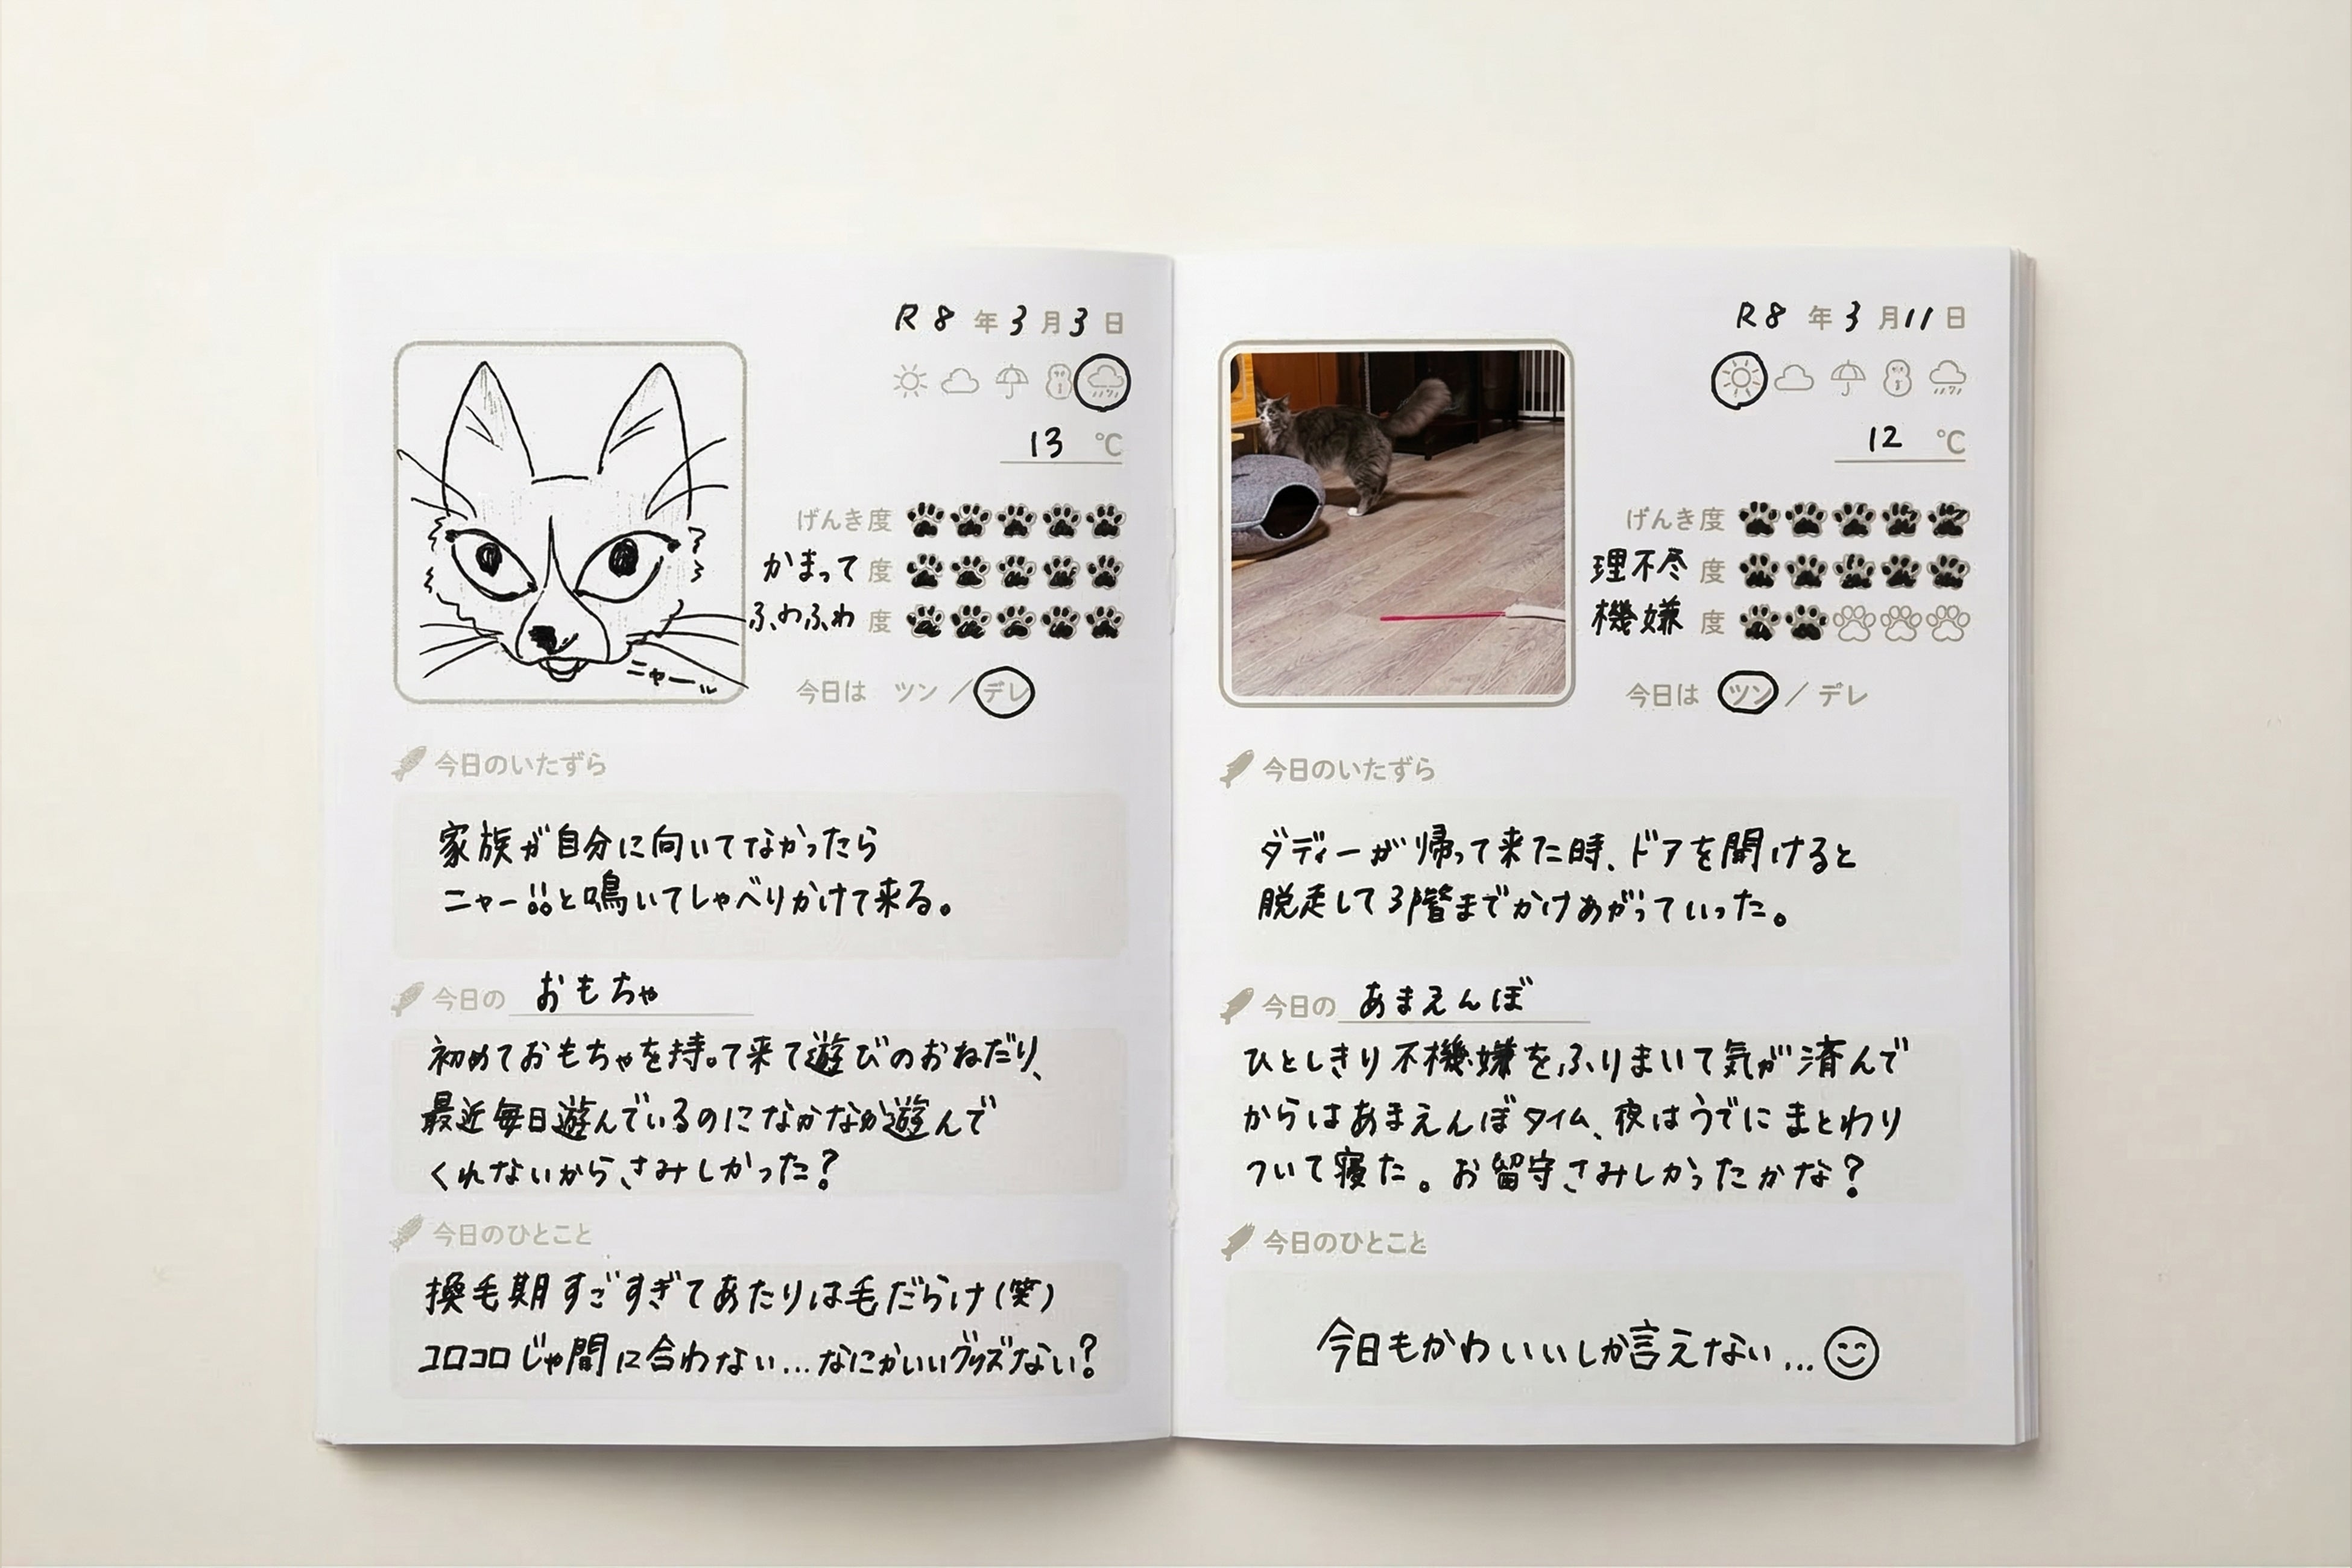 R8年3月3日
13℃
げんき度
かまって度
ふわふわ度
ニャーッ
今日は ツン／デレ
今日のいたずら
家族が自分に向いてなかったら
ニャー!!と鳴いてしゃべりかけて来る。
今日の おもちゃ
初めておもちゃを持って来て遊びのおねだり、
最近毎日遊んでいるのになかなか遊んで
くれないから、さみしかった?
今日のひとこと
換毛期すごすぎてあたりは毛だらけ(笑)
コロコロじゃ間に合わない...なにかいいグッズない?
R8年3月11日
12℃
げんき度
理不尽度
機嫌度
今日は ツン／デレ
今日のいたずら
ダディーが帰って来た時、ドアを開けると
脱走して3階までかけあがっていった。
今日の あまえんぼ
ひとしきり不機嫌をふりまいて気が済んで
からはあまえんぼタイム、夜はうでにまとわり
ついて寝た。お留守さみしかったかな?
今日のひとこと
今日もかわいいしか言えない...